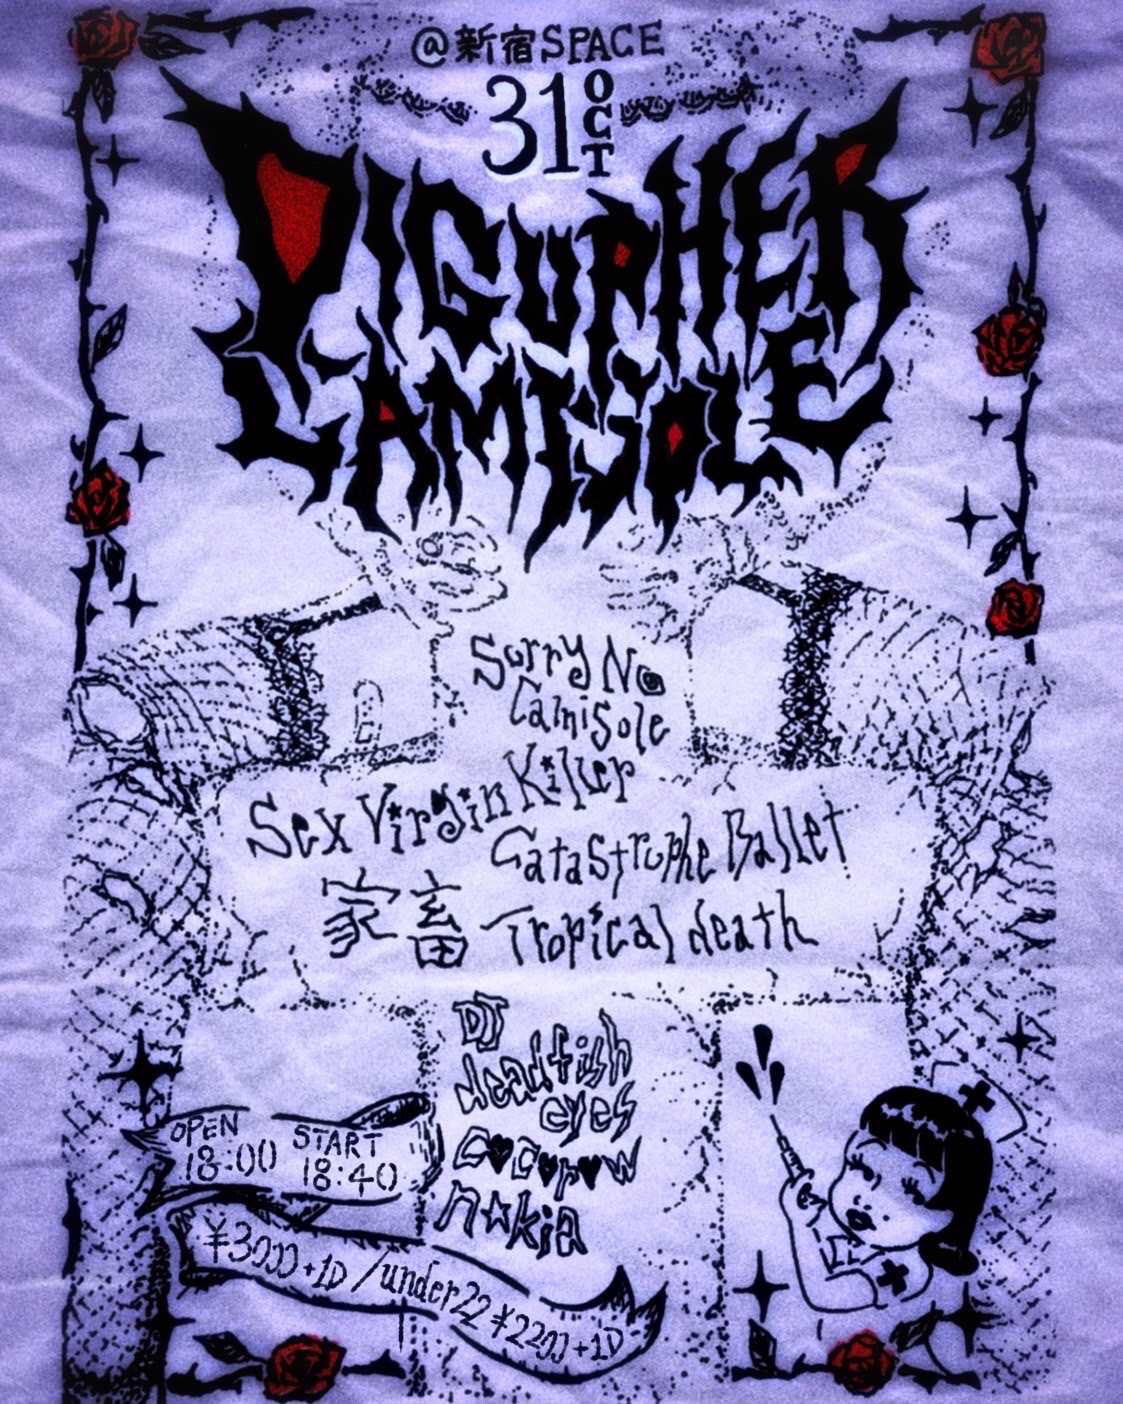 @新宿SPACE
31 OCT
DIGUPHER
CAMISOLE
Sorry No
Camisole
Sex Virgin Killer
Catastrophe Ballet
家畜 Tropical death
DJ
deadfish
eyes
C♥C♥P♥W
n☆kia
OPEN
18:00
START
18:40
¥3000+1D/under22 ¥2200+1D